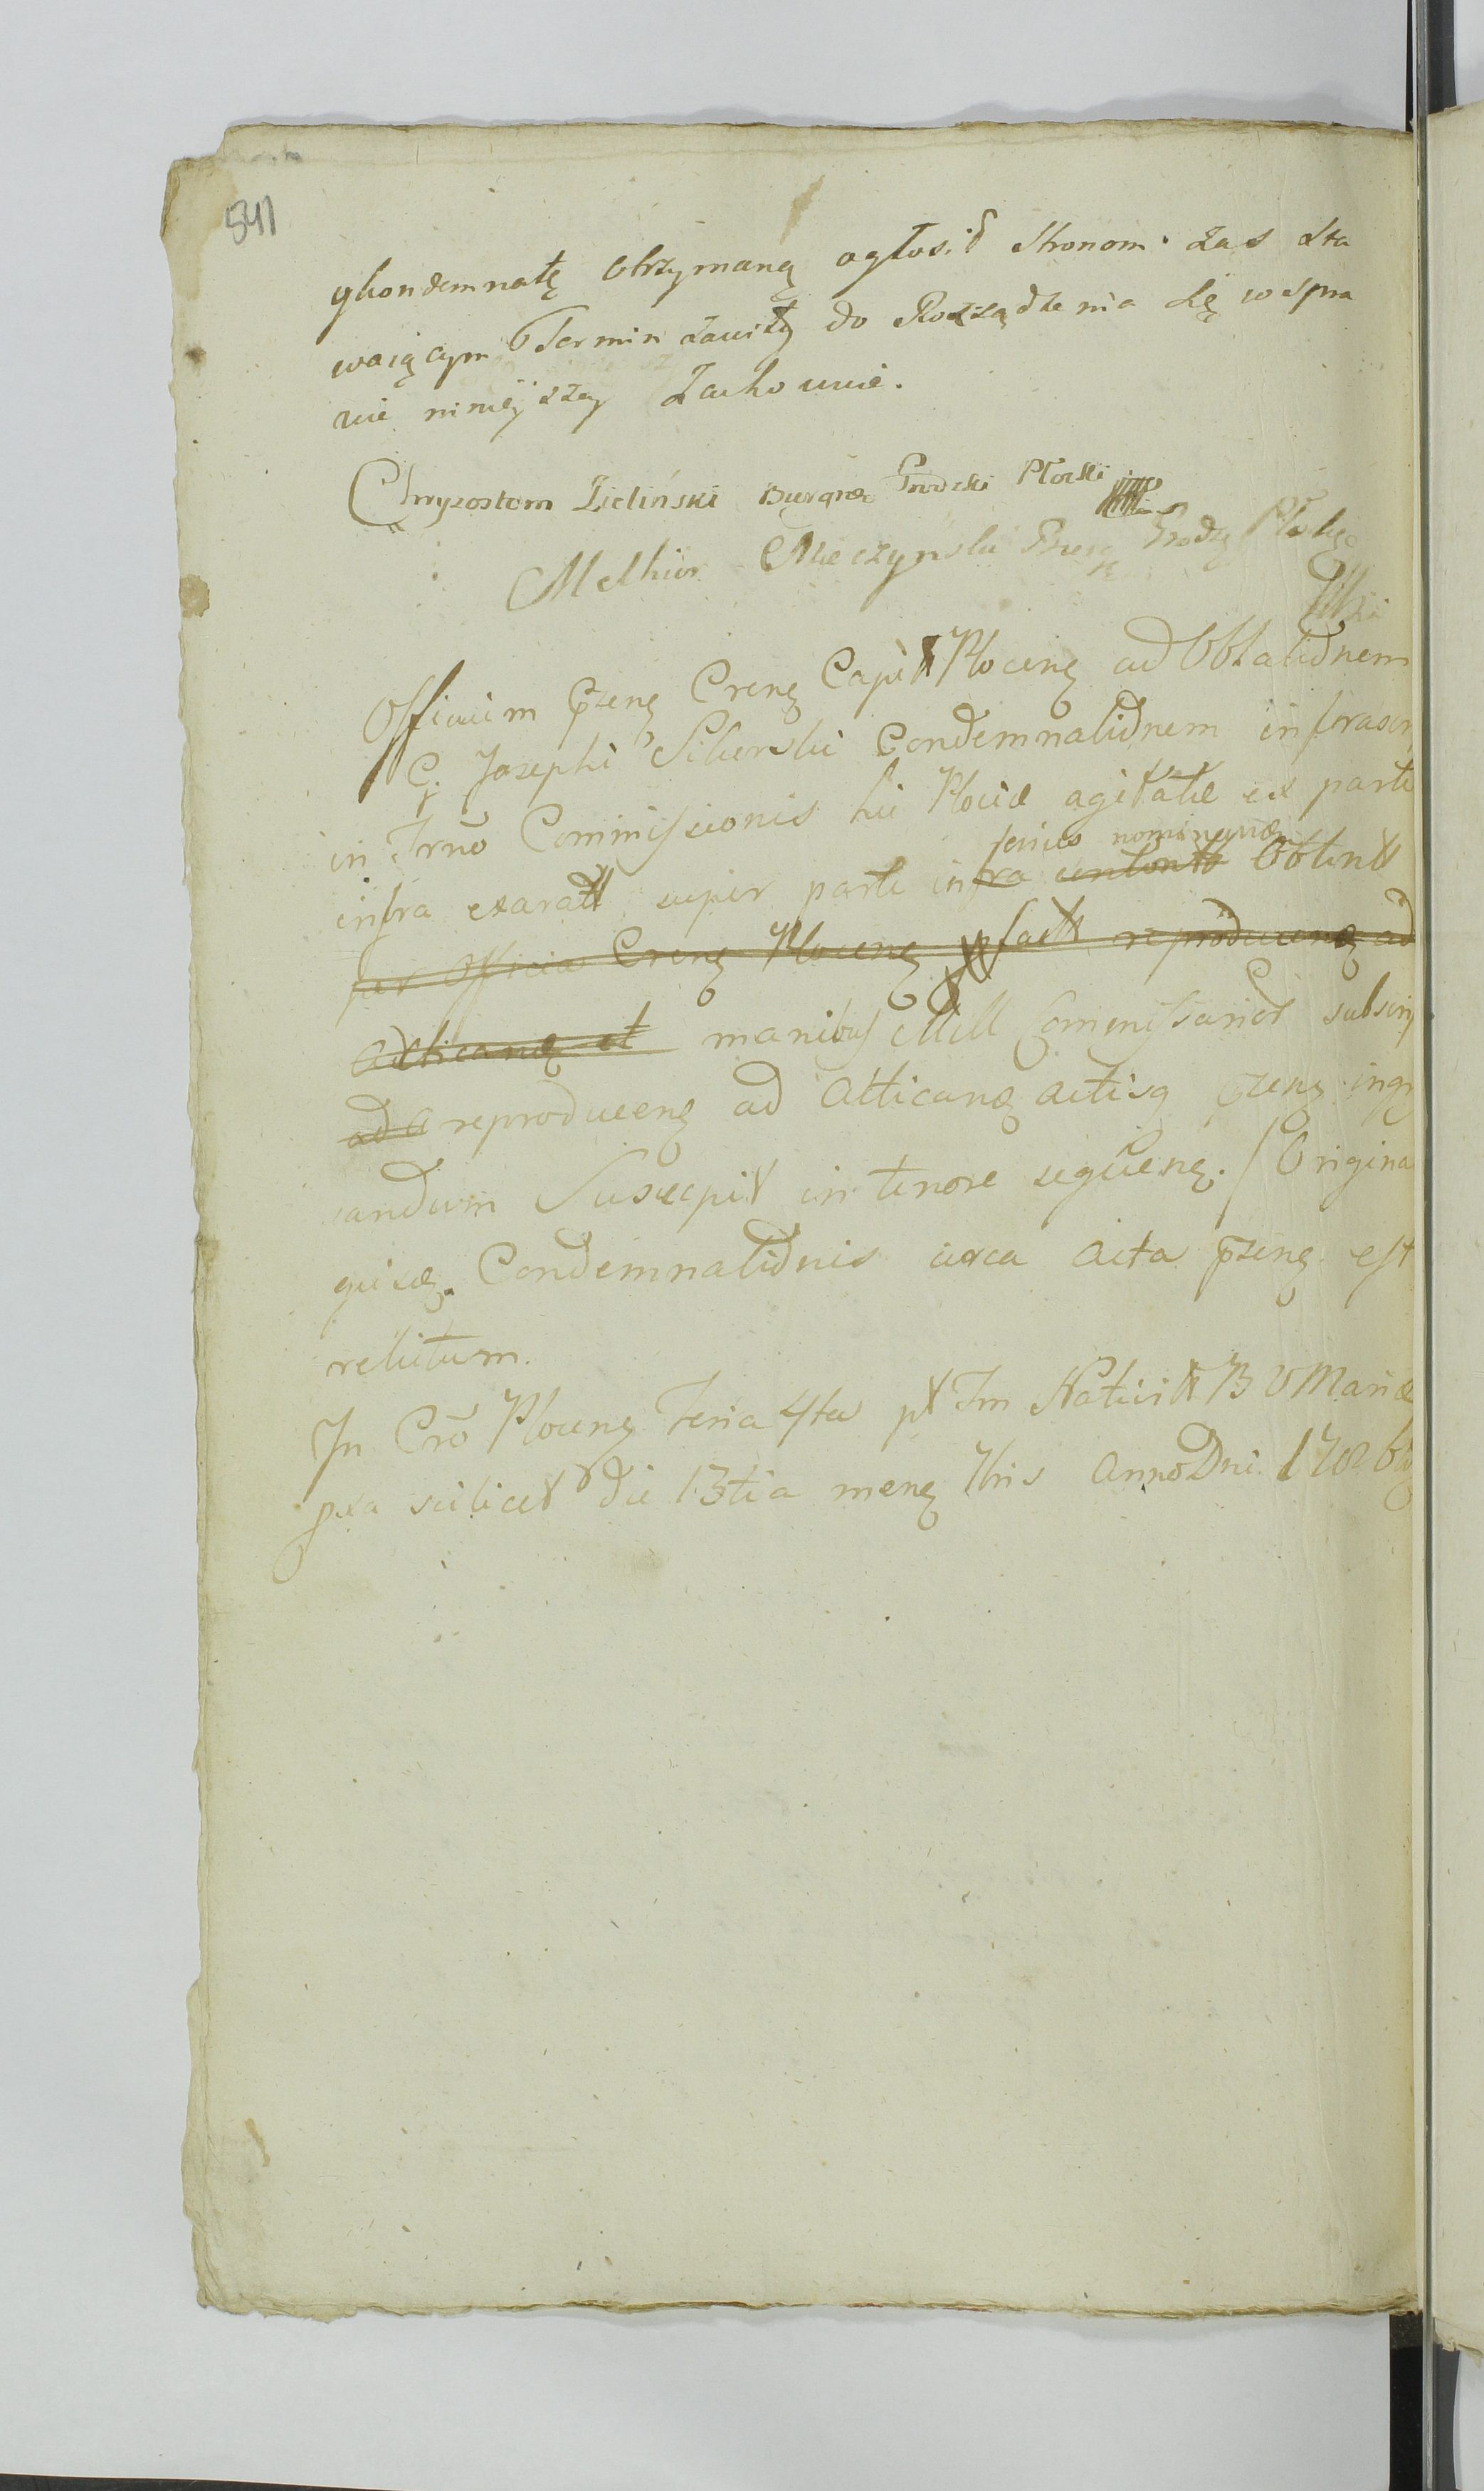 541
ykondemnatę otrzymaną ogłosił Stronom zas Sta
waiącym Termin zawity do Rozsądzenia Się w Spra
wie ninieyszey Zachowuie.
Chryzostom Zieliński Burgra Grodzki Płocki
Melhior Mieczynski Burg Grodz Płocki
Officium pzens Crense Capit Plocens ad Oblationem
G. Josephi Sikorski Condemnationem infrascr
in Trno Commissionis hic Plociæ agitatæ ex parte
serius nominand
infra exarat super parte infra content Obtent
per Officia Crens Plocens fact reproducens ad
acticand et manibus Mill Commissarior subscrip
ad a reproducens ad Acticand actisq pzens ingr
sandum Suscepit in tenore seqūens. / Origina
quise. Condemnationis circa acta pzens est
relictum.
In Crō Plocens Feria 4ta pt Fm Nativit B V Mariæ
pxa scilicet die 13tia mens 7bris Anno Dni 17